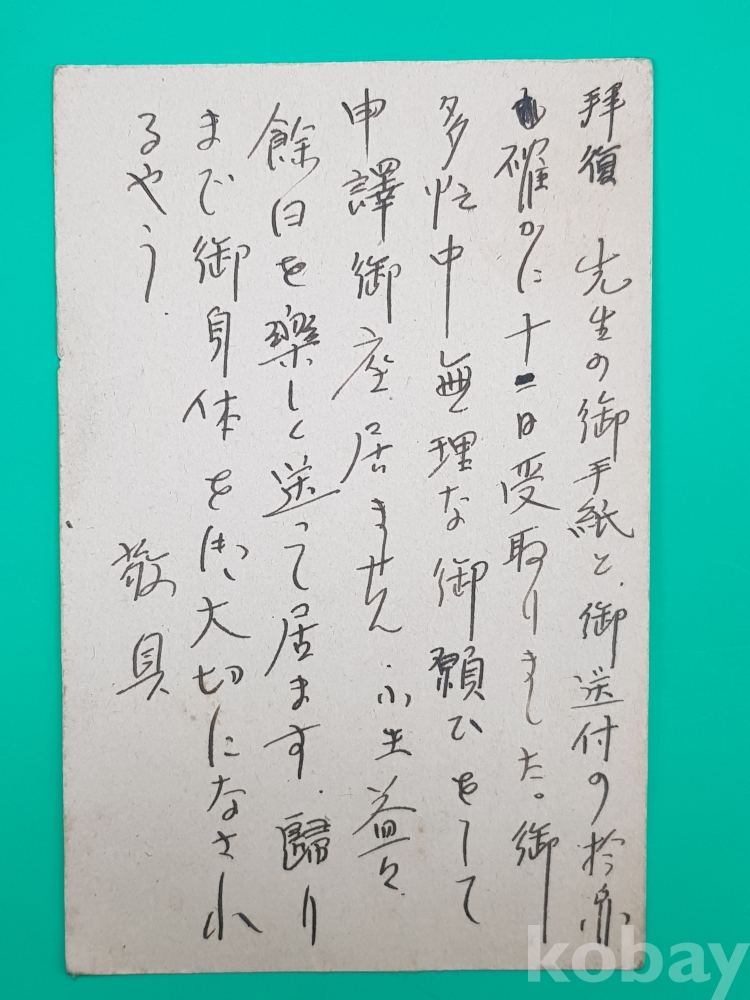 拝復 先生の御手紙と、御送付の
も確かに十二日受取りました。御
多忙中無理な御願ひをして
申譯御座居ません。小生益々
餘日を樂しく送って居ます。歸り
まで御身体を御大切になされ
るやう。
敬具
kobay